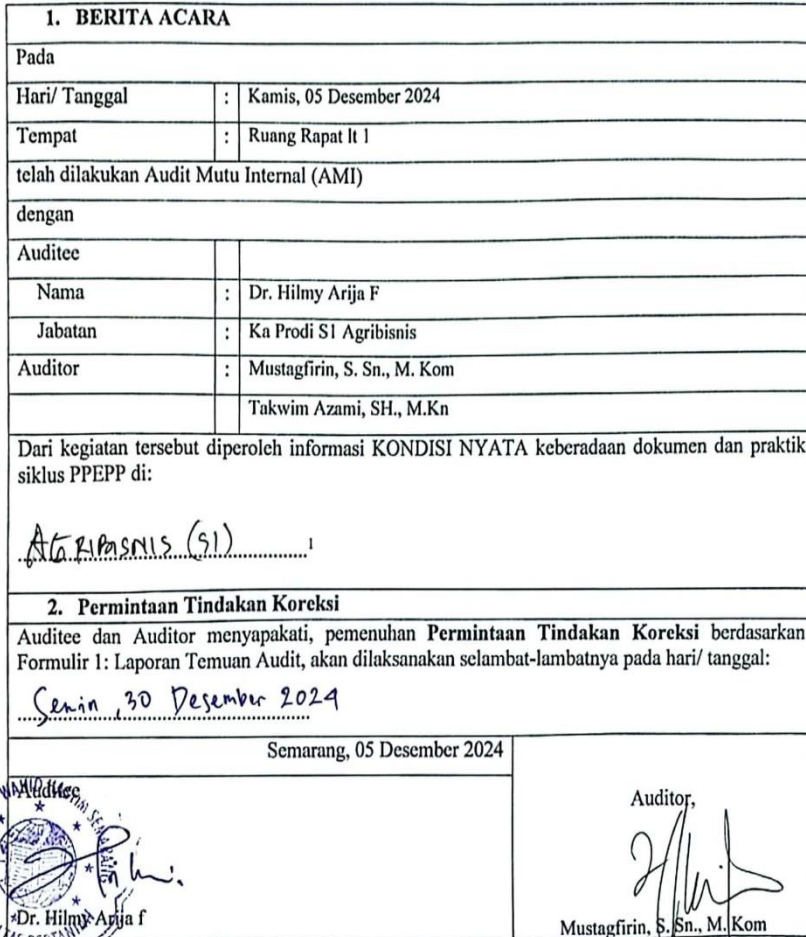 1. BERITA ACARA
Pada
Hari/ Tanggal : Kamis, 05 Desember 2024
Tempat : Ruang Rapat lt 1
telah dilakukan Audit Mutu Internal (AMI)
dengan
Auditee
Nama : Dr. Hilmy Arija F
Jabatan : Ka Prodi S1 Agribisnis
Auditor : Mustagfirin, S. Sn., M. Kom
Takwim Azami, SH., M.Kn
Dari kegiatan tersebut diperoleh informasi KONDISI NYATA keberadaan dokumen dan praktik
siklus PPEPP di:
AGRIBISNIS (S1) 1
2. Permintaan Tindakan Koreksi
Auditee dan Auditor menyapakati, pemenuhan Permintaan Tindakan Koreksi berdasarkan
Formulir 1: Laporan Temuan Audit, akan dilaksanakan selambat-lambatnya pada hari/ tanggal:
Senin, 30 Desember 2024
Semarang, 05 Desember 2024
Auditee
Auditor,
Dr. Hilmy Arija f
Mustagfirin, S. Sn., M. Kom